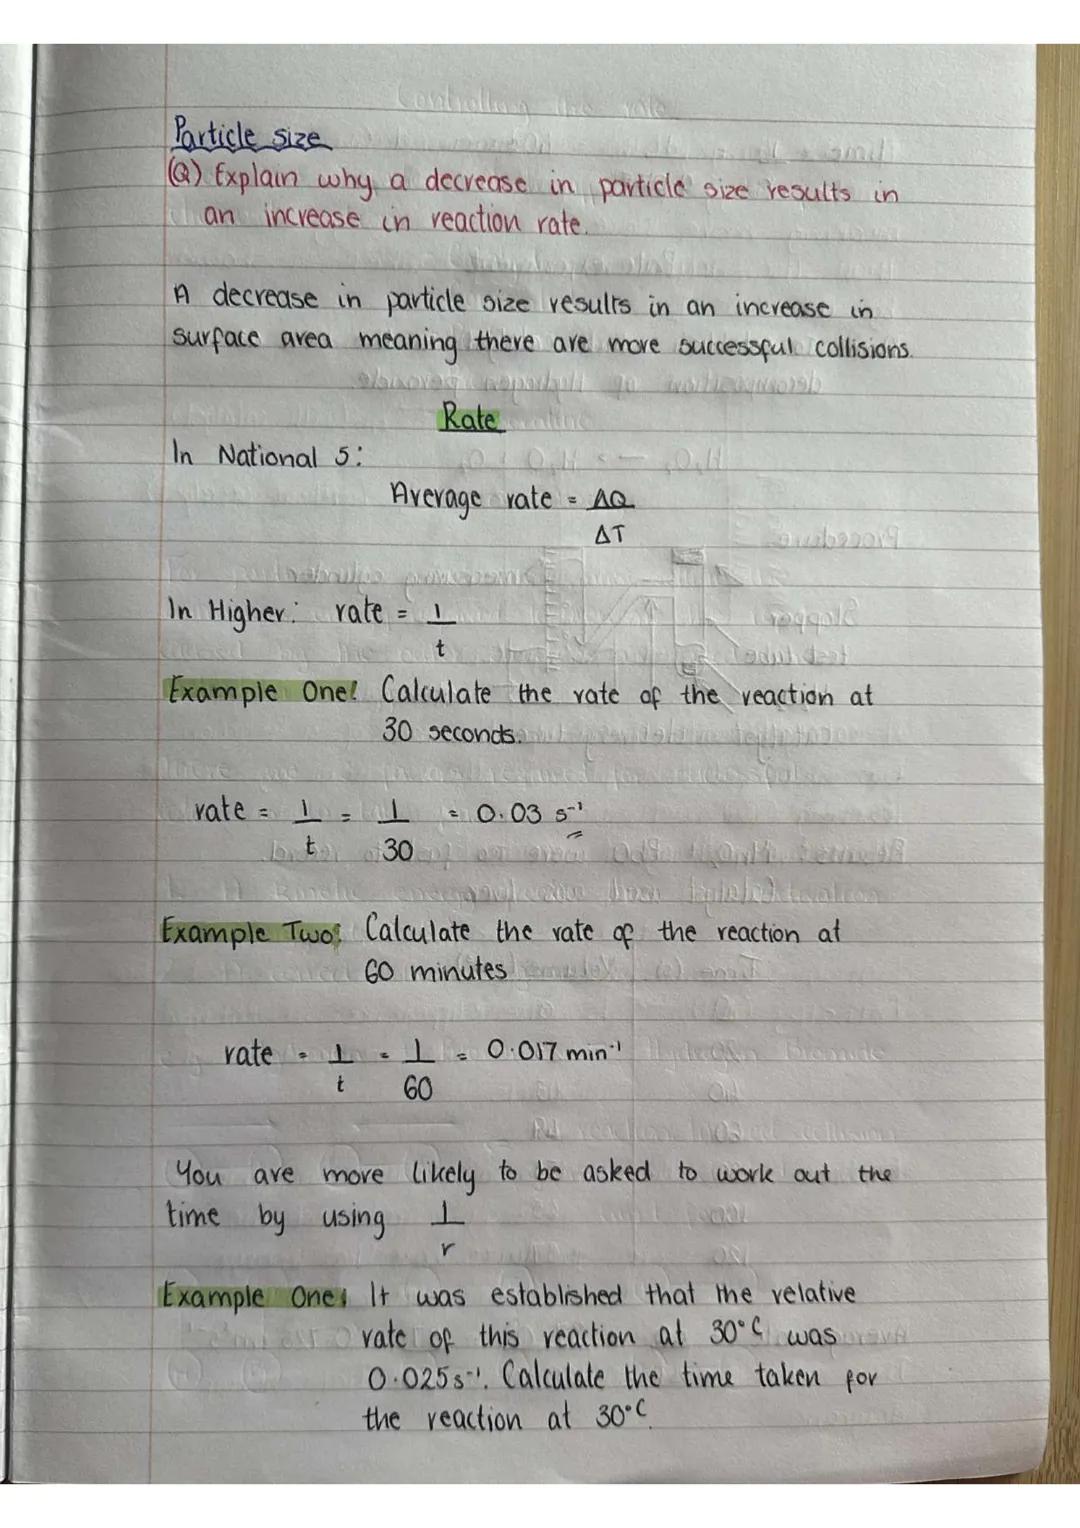 Particle size
(Q) Explain why a decrease in particle size results in
an increase in reaction rate.
A decrease in particle size results in an increase in
surface area meaning there are more successful collisions.
Rate
In National 5:
Average rate = ΔQ
ΔT
In Higher: rate = 1
t
Example One: Calculate the rate of the reaction at
30 seconds.
rate = 1 = 1 = 0.03 s⁻¹
t 30
Example Two: Calculate the rate of the reaction at
60 minutes
rate = 1 = 1 = 0.017 min⁻¹
t 60
You are more likely to be asked to work out the
time by using 1
r
Example One: It was established that the relative
rate of this reaction at 30°C was
0.025 s⁻¹. Calculate the time taken for
the reaction at 30°C.